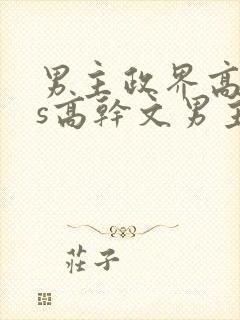 男主政界高
s高幹文男主
莊子